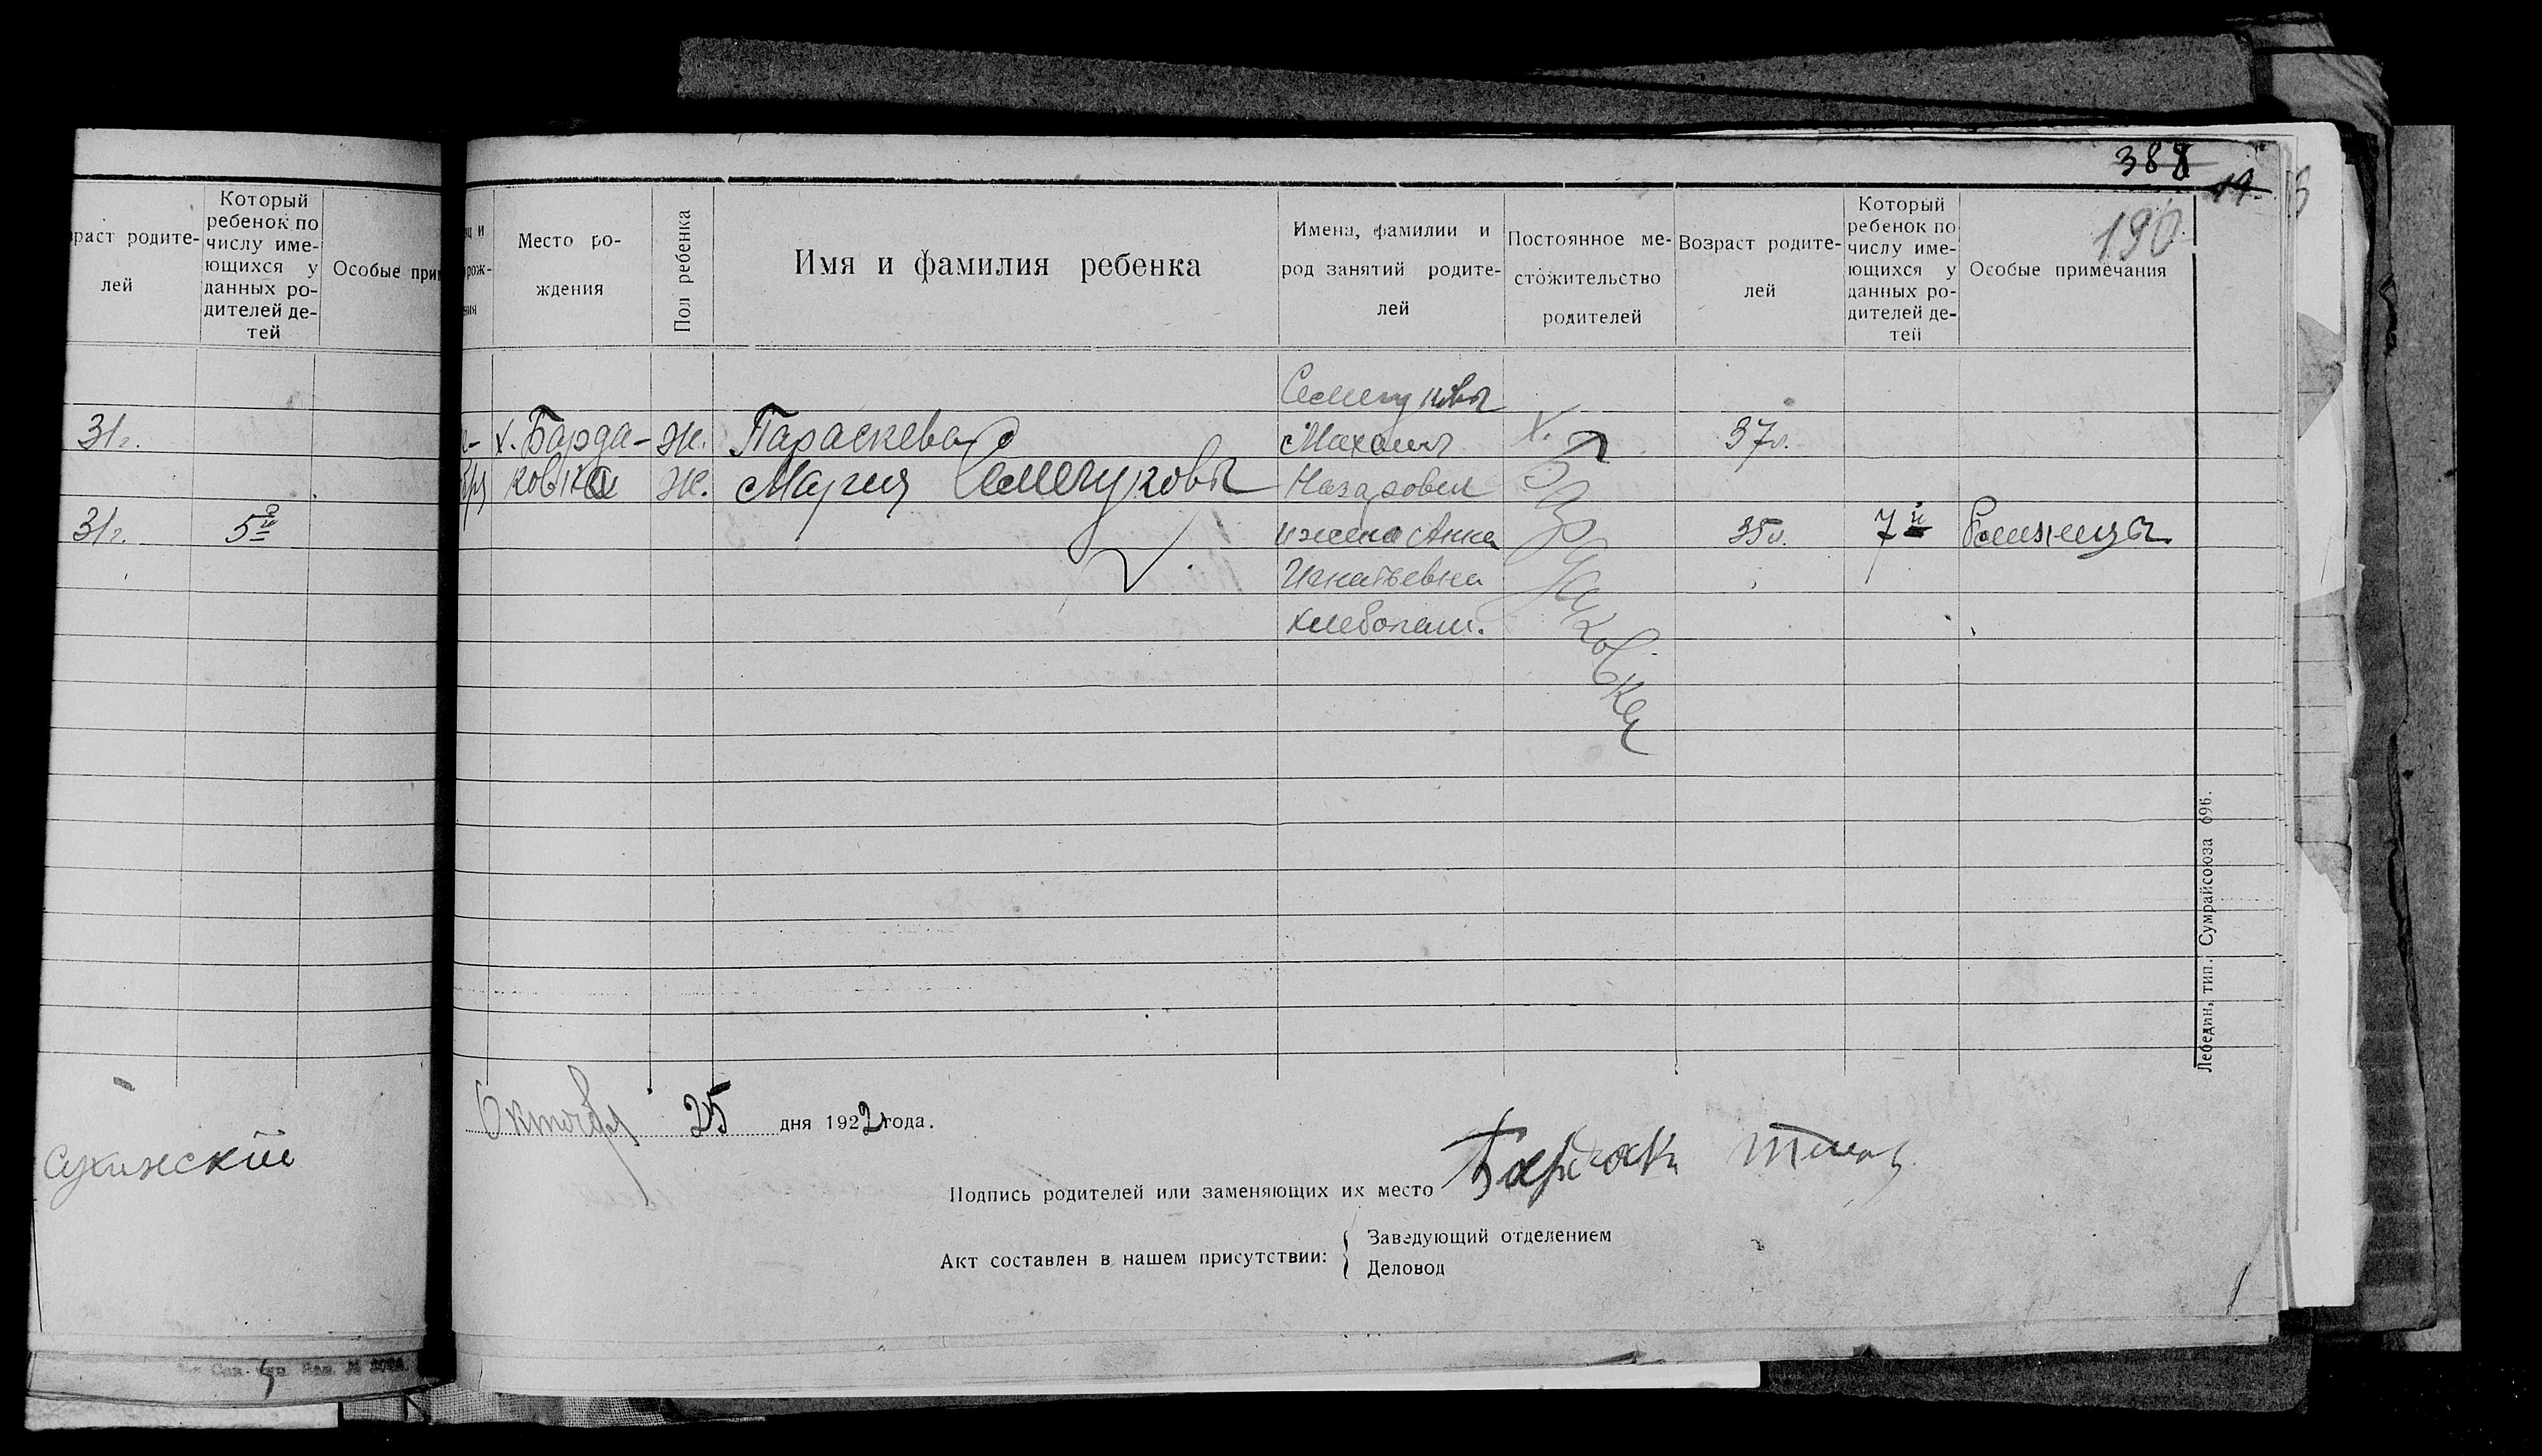 388
14
190
раст родите-
лей
Который
ребенок по
числу име-
ющихся у
данных ро-
дителей де-
тей
Особые прим
31г.
31г.
5й
Сухинский
рож-
Место ро-
ждения
Пол ребенка
Имя и фамилия ребенка
Имена, фамилии и
род занятий родите-
лей
Постоянное ме-
стожительство
родителей
Возраст родите-
лей
Который
ребенок по
числу име-
ющихся у
данных ро-
дителей де-
тей
Особые примечания
х. Барда-
ковка
ж.
ж.
Параскева
Мария
Назарович
и жена Анна
Игнатьевна
хлебопаш.
х.
37л.
35л.
7й
Близнецы
Октября 25 дня 1922 года.
Подпись родителей или заменяющих их место
Акт составлен в нашем присутствии:
Заведующий отделением
Деловод
Лебедин, тип. Сумрайсоюза 696.